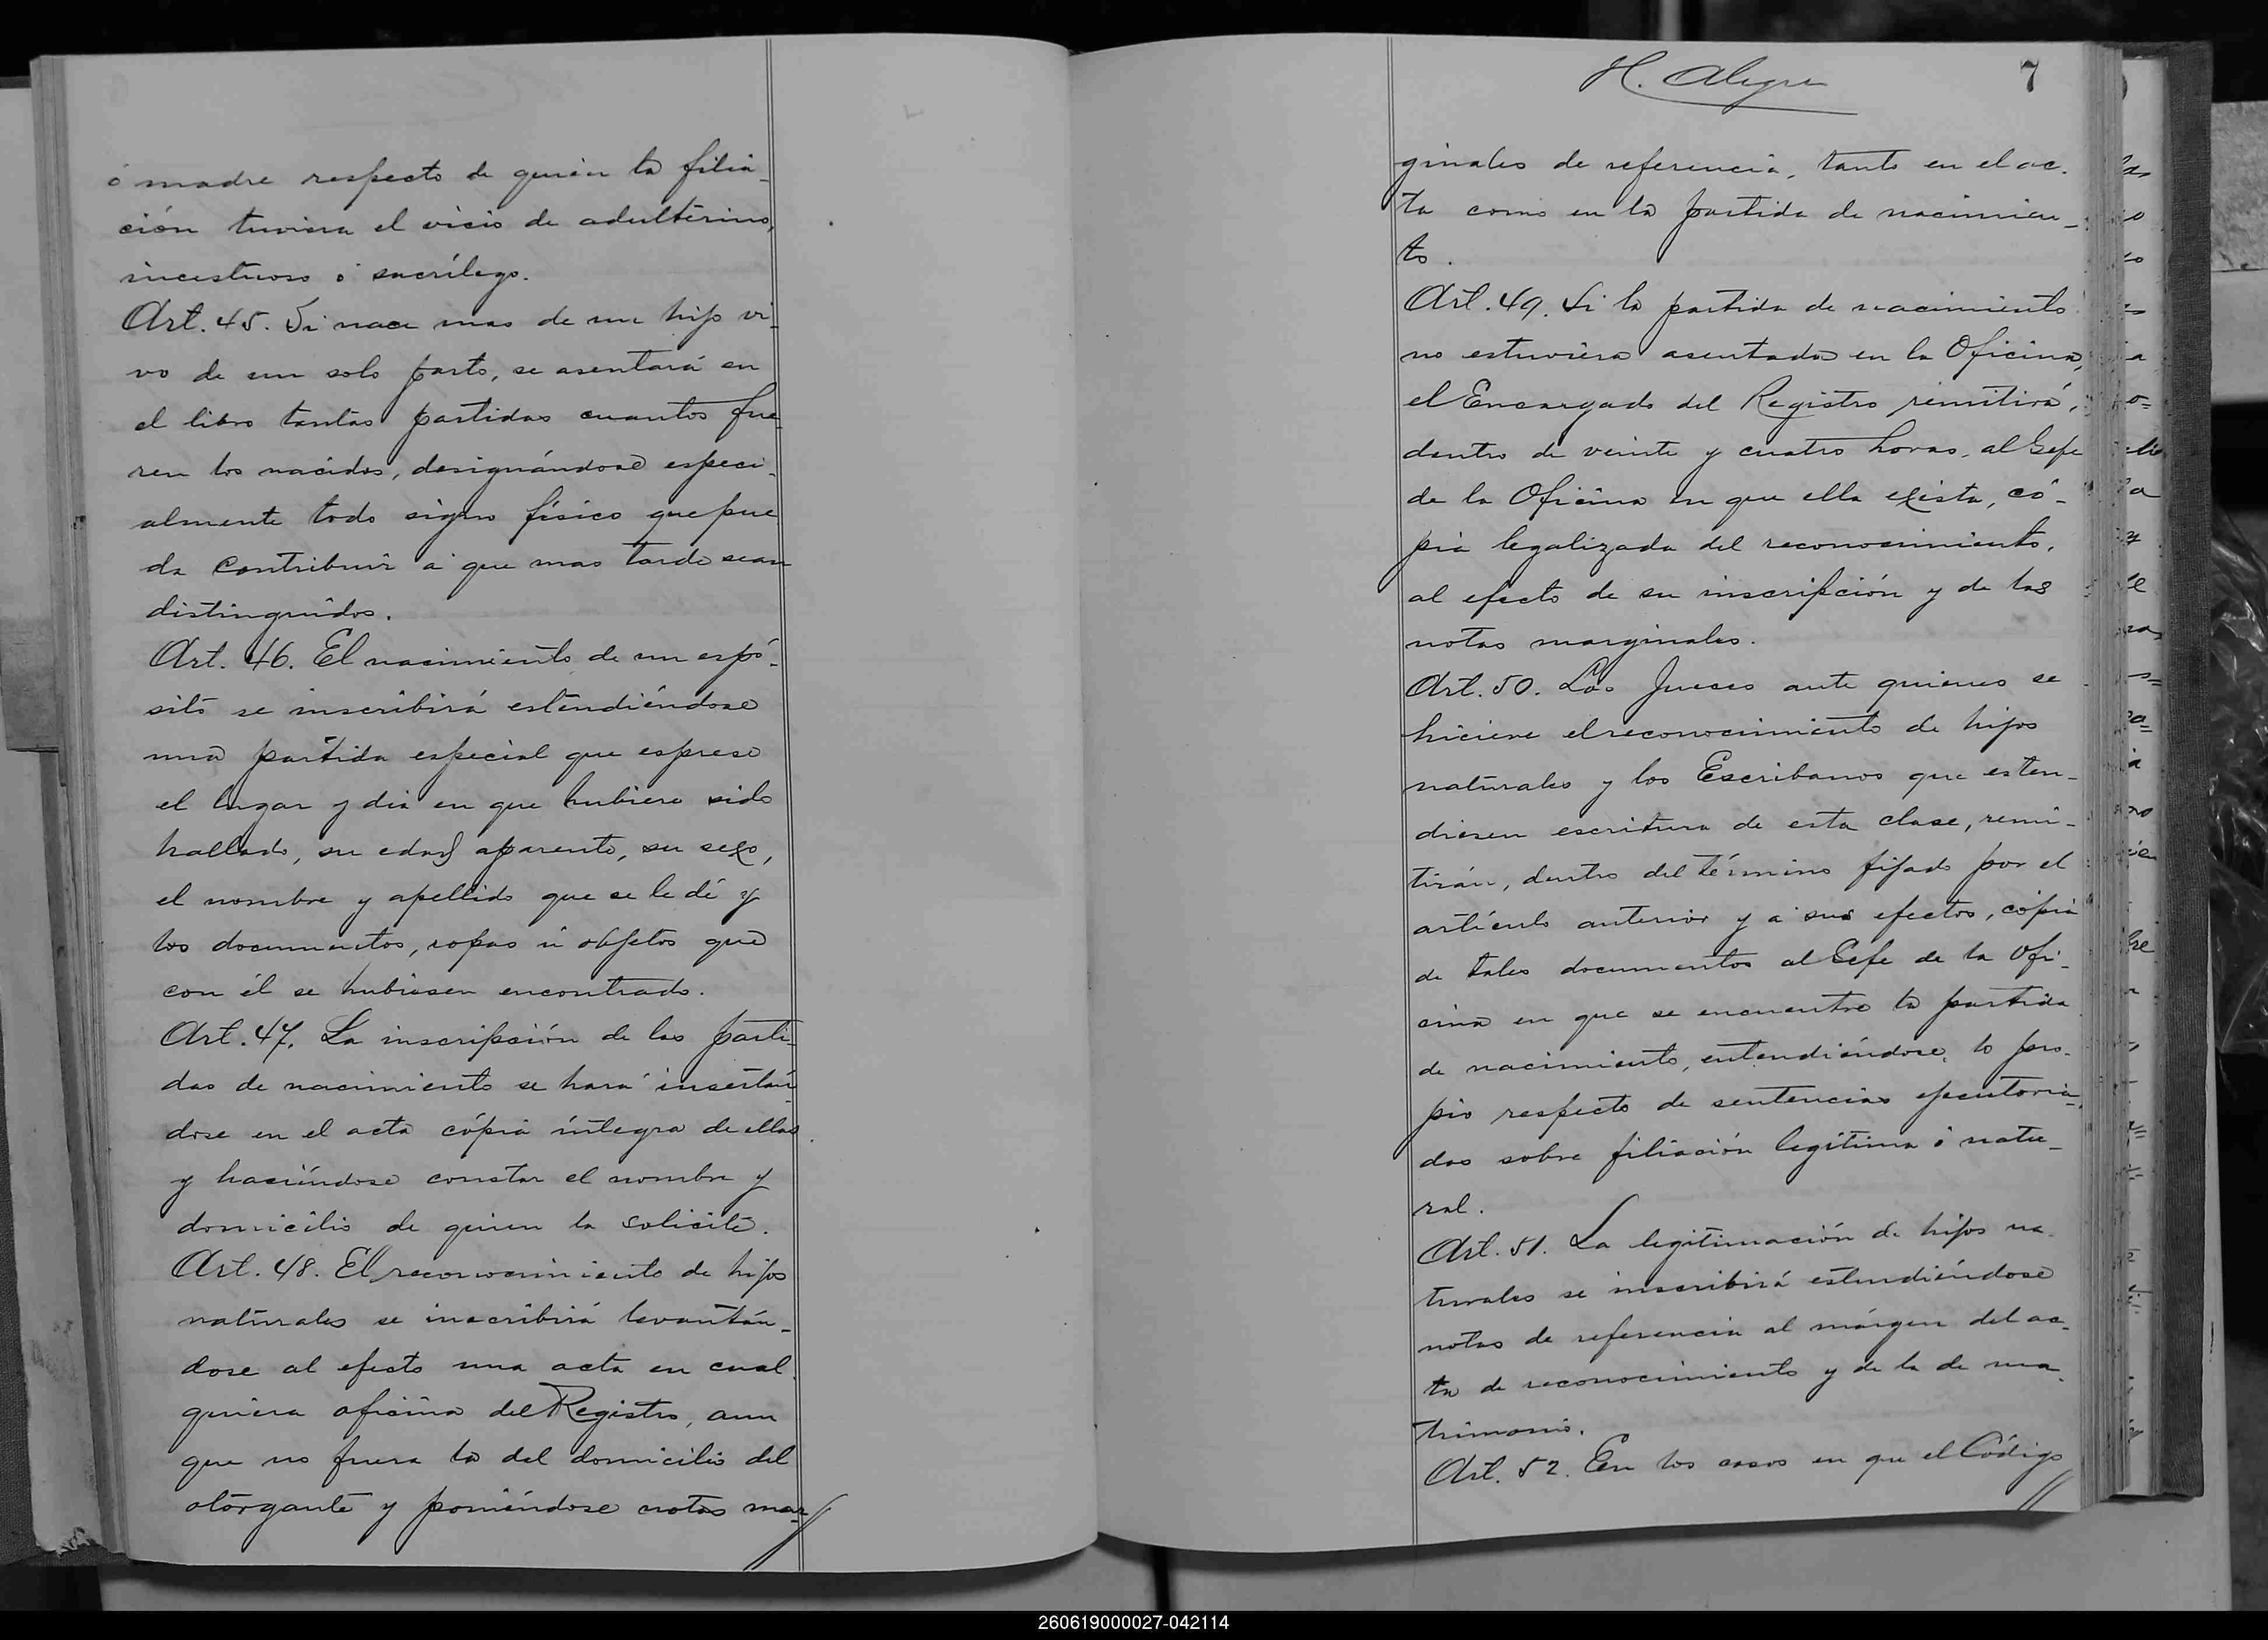 ó madre respecto de quien la filia-
ción tuviera el vicio de adulterino,
incestuoso ó sacrílego.
Art. 45. Si nace mas de un hijo vi-
vo de un solo parto, se asentará en
el libro tantas partidas cuantos fue-
ren los nacidos, designándose especi-
almente todo signo físico que pue
da contribuir á que mas tarde sean
distinguidos.
Art. 46. El nacimiento de un espó-
sito se inscribirá estendiéndose
una partida especial que esprese
el lugar y dia en que hubiere sido
hallado, su edad aparente, su sexo,
el nombre y apellido que se le dé y
los documentos, ropas ú objetos que
con él se hubiesen encontrado.
Art. 47. La inscripción de las parti-
das de nacimiento se hará insertán-
dose en el acta cópia íntegra de ellas
y haciéndose constar el nombre y
domicilio de quien la solicite.
Art. 48. El reconocimiento de hijos
naturales se inscribirá levantán-
dose al efecto una acta en cual-
quiera oficina del Registro, aun
que no fuera la del domicilio del
otorgante y poniéndose notas mar-
H. Alegre
7
ginales de referencia, tanto en el ac-
ta como en la partida de nacimien-
to.
Art. 49. Si la partida de nacimiento
no estuviera asentada en la Oficina,
el Encargado del Registro remitirá,
dentro de veinte y cuatro horas, al Gefe
de la Oficina en que ella exista, có-
pia legalizada del reconocimiento,
al efecto de su inscripción y de las
notas marginales.
Art. 50. Los Jueces ante quienes se
hiciere el reconocimiento de hijos
naturales y los Escribanos que esten-
diesen escritura de esta clase, remi-
tirán, dentro del término fijado por el
artículo anterior y á sus efectos, cópia
de tales documentos al Gefe de la Ofi-
cina en que se encuentre la partida
de nacimiento, entendiéndose, lo pro-
pio respecto de sentencias ejecutoria-
das sobre filiación legítima ó natu-
ral.
Art. 51. La legitimación de hijos na-
turales se inscribirá estendiéndose
notas de referencia al márgen del ac-
ta de reconocimiento y de la de ma-
trimonio.
Art. 52. En los casos en que el Código
260619000027-042114